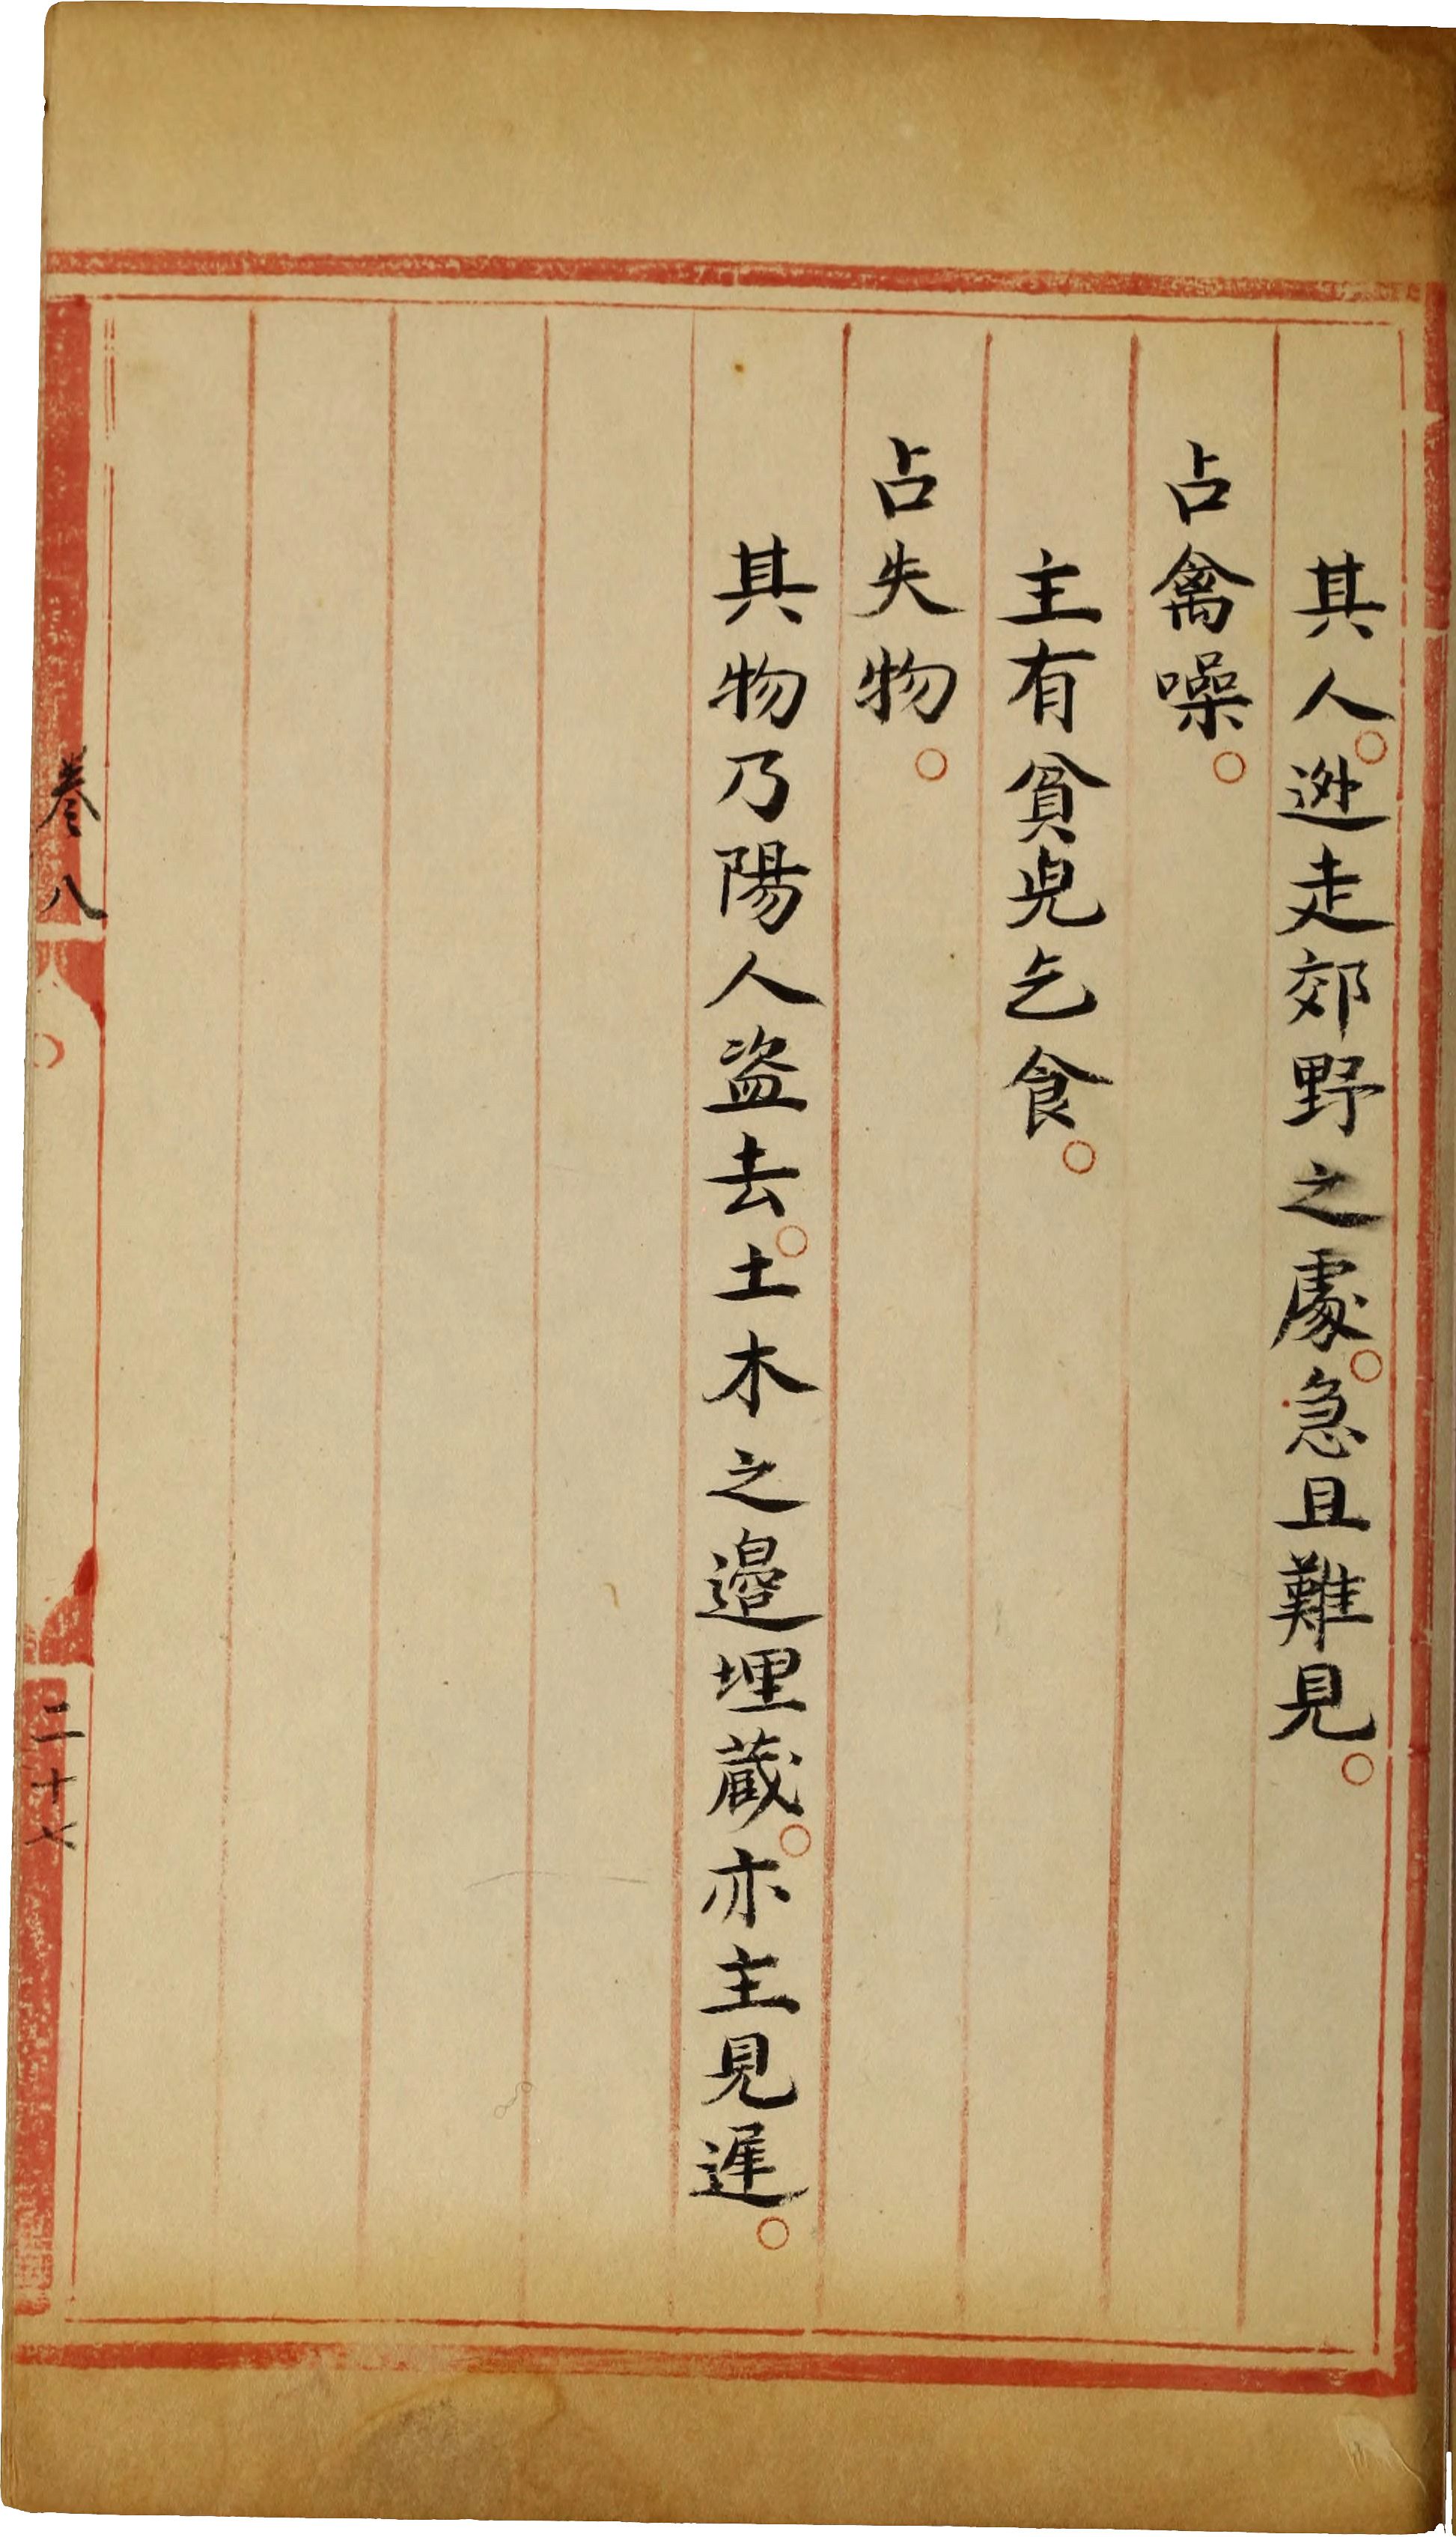 其人。逃走郊野之處。急且難見。
占禽噪。
主有貧兒乞食。
占失物。
其物乃陽人盗去。土木之邉埋蔵。亦主見遲。
卷八
二十七